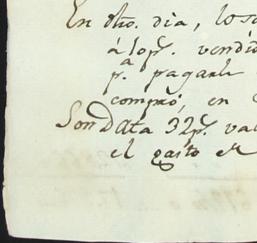 En dho. dia, los
á 10 p.s. vendi
p.a pagarle
compró, en
Son data 32 p.s. va
el gasto e